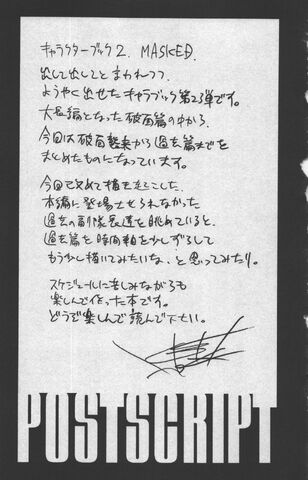 キャラクターブック2. MASKED.
出して出してとまわれつつ
ようやく出せたキャラブック第2弾です。
大長編となった破面篇の中から、
今回は破面襲来から過去篇までを
まとめたものになっています。
今回改めて描き起こした、
本編に登場させられなかった
過去の副隊長達を眺めていると、
過去篇を時間軸を少しずらして
もう少し描いてみたいな、と思ってみたり。
スケジュールに苦しみながらも
楽しんで作った本です。
どうぞ楽しんで読んで下さい。
POSTSCRIPT